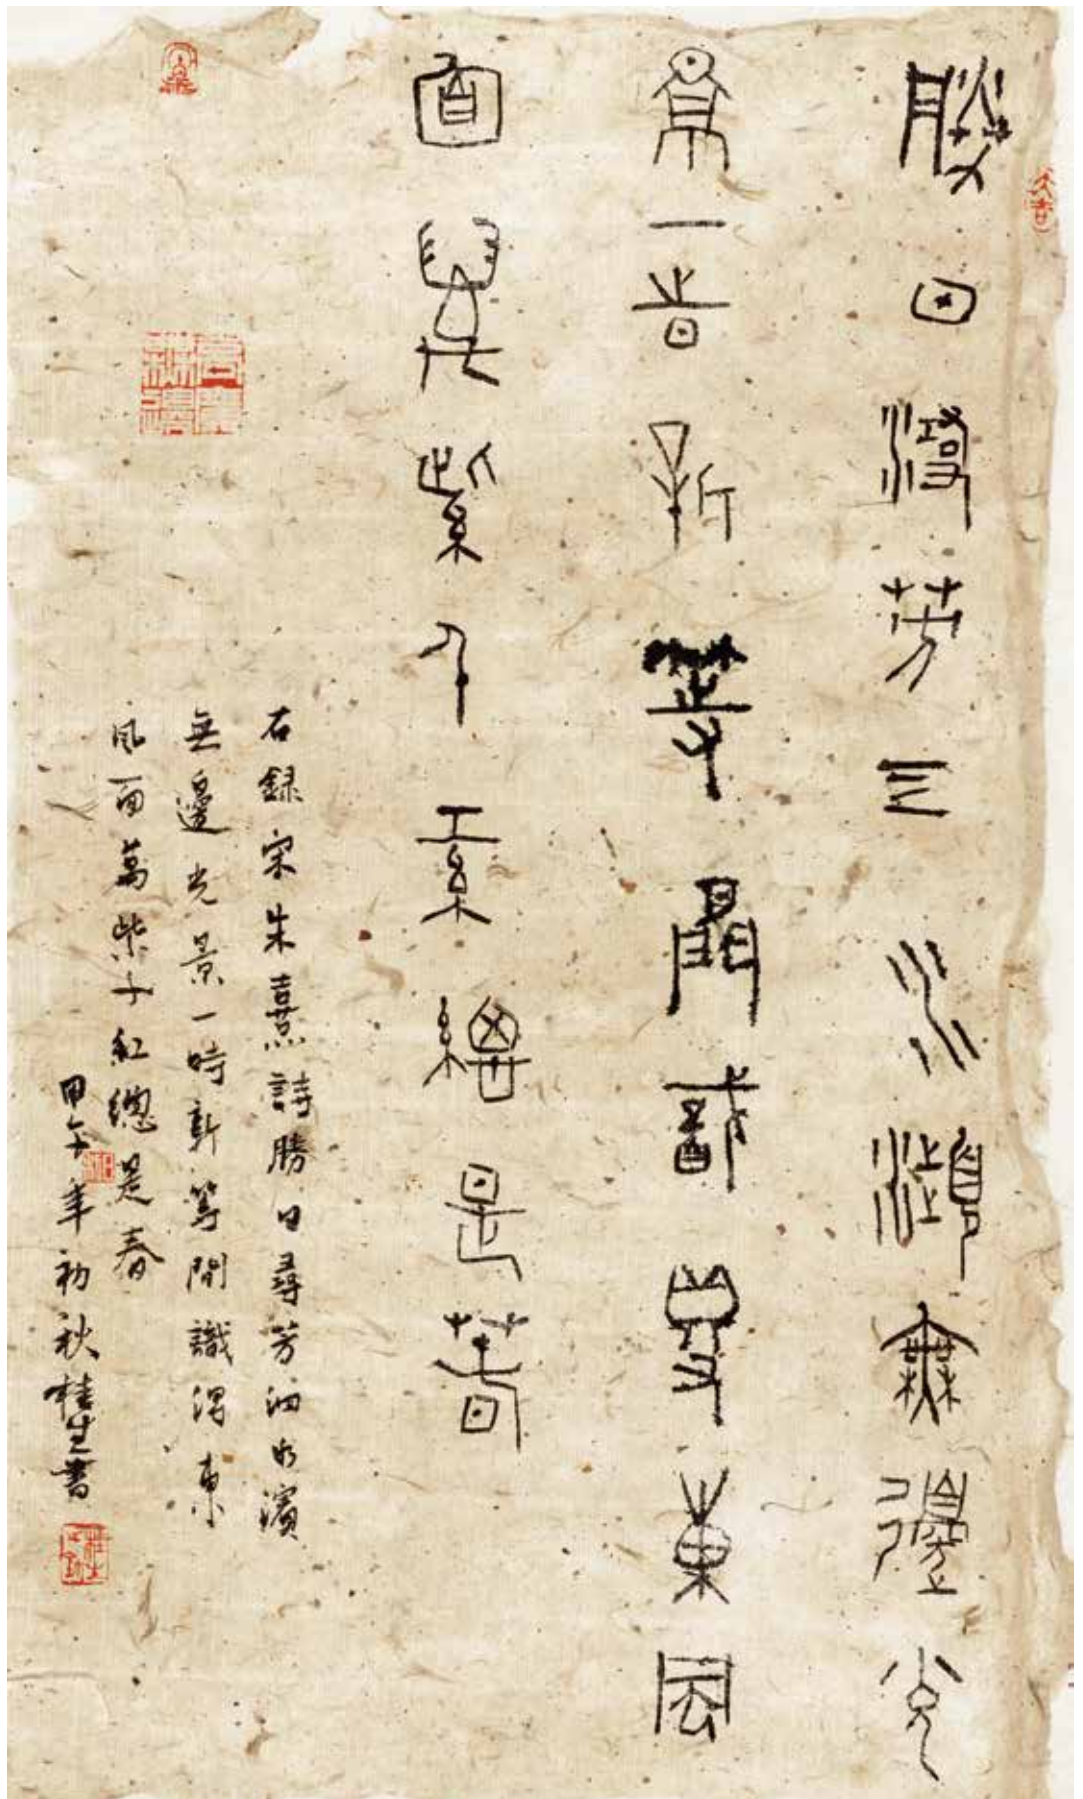 勝日尋芳泗水濱無邊光
景一時新等閒識得東風
面萬紫千紅總是春
右録宋朱熹詩勝日尋芳泗水濱
無邊光景一時新等閒識得東
風面萬紫千紅總是春
甲午年初秋桂生書